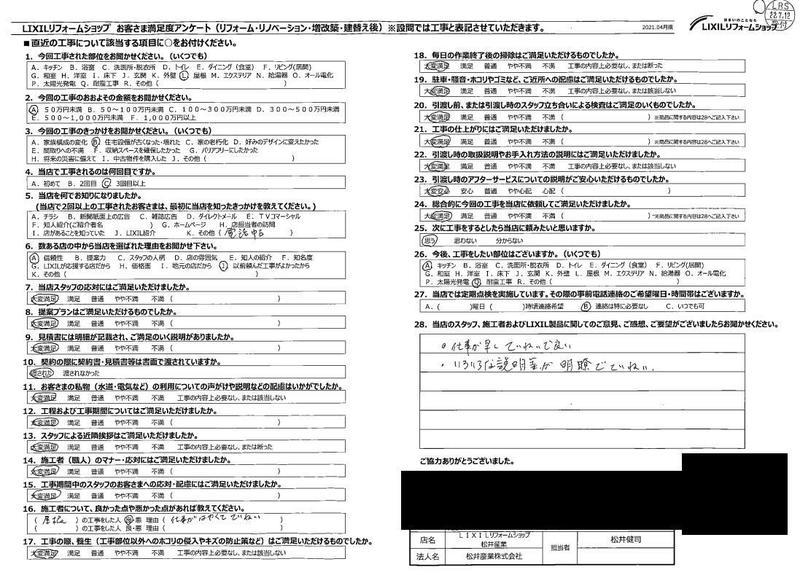 LIXILリフォームショップ お客さま満足度アンケート（リフォーム・リノベーション・増改築・建替え後）※設問では工事と表記させていただきます。
2021.04月版
LIXILリフォームショップ
■ 直近の工事について該当する項目に○をお付けください。
1．今回工事された部位をお聞かせください。（いくつでも）
A．キッチン B．浴室 C．洗面所・脱衣所 D．トイレ E．ダイニング（食堂） F．リビング（居間）
G．和室 H．洋室 I．床下 J．玄関 K．外壁 L．屋根 M．エクステリア N．給湯器 O．オール電化
P．太陽光発電 Q．耐震工事 R．その他（ ）
2．今回の工事のおおよその金額をお聞かせください。
A．50万円未満 B．50～100万円未満 C．100～300万円未満 D．300～500万円未満
E．500～1,000万円未満 F．1,000万円以上
3．今回の工事のきっかけをお聞かせください。（いくつでも）
A．家族構成の変化 B．住宅設備が古くなった・壊れた C．家の老朽化 D．好みのデザインに変えたかった
E．間取りへの不満 F．収納スペースを確保したかった G．バリアフリーにしたかった
H．将来の災害に備えて I．中古物件を購入した J．その他（ ）
4．当店で工事されるのは何回目ですか。
A．初めて B．2回目 C．3回目以上
5．当店を何でお知りになりましたか。
（当店で2回以上の工事されたお客さまは、最初に当店を知ったきっかけを教えてください。）
A．チラシ B．新聞紙面上の広告 C．雑誌広告 D．ダイレクトメール E．TVコマーシャル
F．知人紹介（ご紹介者名 ） G．ホームページ H．店担当者の訪問
I．店があることを知っていた J．LIXIL紹介 K．その他（ ）
6．数ある店の中から当店を選ばれた理由をお聞かせ下さい。
A．信頼性 B．提案力 C．スタッフの人柄 D．店の雰囲気 E．知人の紹介 F．知名度
G．LIXILが応援する店だから H．価格面 I．地元の店だから J．以前頼んだ工事がよかったから
K．その他（ ）
7．当店スタッフの対応にはご満足いただけましたか。
大変満足 満足 普通 やや不満 不満（ ）
8．提案プランはご満足いただけましたか。
大変満足 満足 普通 やや不満 不満（ ）
9．見積書には明細が記載され、ご満足のいく説明がありましたか。
大変満足 満足 普通 やや不満 不満（ ）
10．契約の際に契約書・見積書等は書面で渡されていますか。
渡された 渡されなかった
11．お客さまの私物（水道・電気など）の利用についての声がけや説明などの配慮はいかがでしたか。
大変満足 満足 普通 やや不満 不満 工事の内容上必要なし、または該当しない
12．工程および工事期間についてはご満足いただけましたか。
大変満足 満足 普通 やや不満 不満（ ）
13．スタッフによる近隣挨拶はご満足いただけましたか。
大変満足 満足 普通 やや不満 不満 工事の内容上必要なし、または断った
14．施工者（職人）のマナー・応対にはご満足いただけましたか。
大変満足 満足 普通 やや不満 不満（ ）
15．工事期間中のスタッフのお客さまへの応対・配慮にはご満足いただけましたか。
大変満足 満足 普通 やや不満 不満（ ）
16．施工者について、良かった点や悪かった点があれば教えてください。
（ 屋根 ）の工事をした人 良・悪 理由（ 仕事がはやくてていねい ）
（ ）の工事をした人 良・悪 理由（ ）
17．工事の際、養生（工事部位以外へのホコリの侵入やキズの防止策など）はご満足いただけましたか。
大変満足 満足 普通 やや不満 不満 工事の内容上必要なし、または該当しない
18．毎日の作業終了後の掃除はご満足いただけるものでしたか。
大変満足 満足 普通 やや不満 不満 工事の内容上必要なし、または断った
19．駐車・騒音・ホコリやゴミなど、ご近所への配慮はご満足いただけるものでしたか。
大変満足 満足 普通 やや不満 不満 工事の内容上必要なし、または該当しない
20．引渡し前、または引渡し時のスタッフ立ち合いによる検査はご満足のいくものでしたか。
大変満足 満足 普通 やや不満 不満（ ）※商品に関する内容は28へご記入下さい
21．工事の仕上がりにはご満足いただけましたか。
大変満足 満足 普通 やや不満 不満（ ）※商品に関する内容は28へご記入下さい
22．引渡し時の取扱説明やお手入れ方法の説明にはご満足いただけましたか。
大変満足 満足 普通 やや不満 不満 工事の内容上必要なし、または該当しない
23．引渡し時のアフターサービスについての説明がご安心いただけるものでしたか。
大変安心 安心 普通 やや心配 心配（ ）
24．総合的に今回の工事を当店に依頼してご満足いただけましたか。
大変満足 満足 普通 やや不満 不満（ ）※商品に関する内容は28へご記入下さい
25．次に工事をするとしたら当店に頼みたいと思いますか。
思う 思わない 分からない
26．今後、工事をしたい部位はございますか。（いくつでも）
A．キッチン B．浴室 C．洗面所・脱衣所 D．トイレ E．ダイニング（食堂） F．リビング（居間）
G．和室 H．洋室 I．床下 J．玄関 K．外壁 L．屋根 M．エクステリア N．給湯器 O．オール電化
P．太陽光発電 Q．耐震工事 R．その他（ ）
27．当店では定期点検を実施しています。その際の事前電話連絡のご希望曜日・時間帯はございますか。
A．（ ）曜日（ ）時頃連絡希望 B．連絡は特に必要なし C．いつでも可
28．当店のスタッフ、施工者およびLIXIL製品に関してのご意見、ご感想、ご要望がございましたらお聞かせください。
・仕事が早くていねいで良い
・いろいろな説明等が明瞭でていねい。
ご協力ありがとうございました。
店名 LIXILリフォームショップ 松井産業 担当者 松井健司
法人名 松井産業株式会社